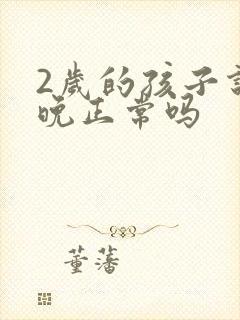 2岁的孩子
晚正常吗
董藩